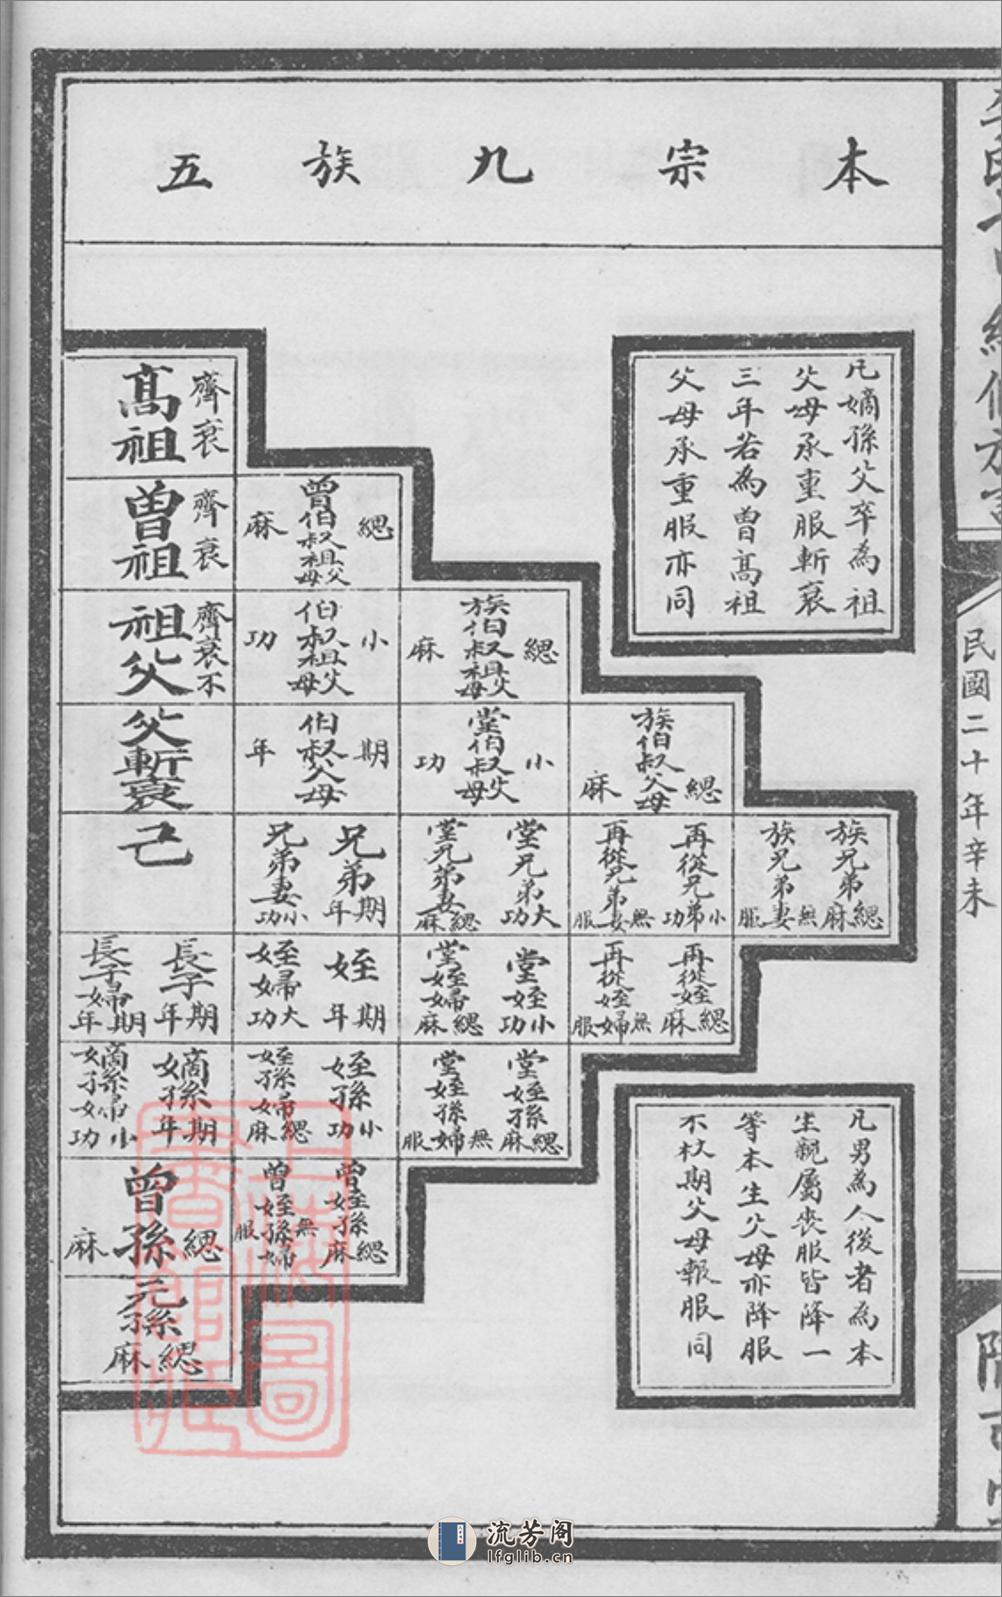 本宗九族五
凡嫡孫父卒為祖
父母承重服斬衰
三年若為曾高祖
父母承重服亦同
凡男為人後者為本
生親屬喪服皆降一
等本生父母亦降服
不杖期父母報服同
民國二十年辛未
高祖 齊衰
曾祖 齊衰
曾伯叔祖父母 緦麻
祖父 齊衰不
伯叔祖父母 小功
族伯叔祖父母 緦麻
父斬衰
伯叔父母 期年
堂伯叔父母 小功
族伯叔父母 緦麻
己
兄弟期年
兄弟妻小功
堂兄弟大功
堂兄弟妻緦麻
再從兄弟小功
再從兄弟妻無服
族兄弟緦麻
族兄弟妻無服
長子期年
長子婦期年
姪期年
姪婦大功
堂姪小功
堂姪婦緦麻
再從姪緦麻
再從姪婦無服
嫡孫期年
嫡孫婦小功
姪孫小功
姪孫婦緦麻
堂姪孫緦麻
堂姪孫婦無服
曾孫緦麻
曾姪孫緦麻
曾姪孫婦無服
元孫緦麻
上海圖書館藏
流芳阁
lfglib.cn